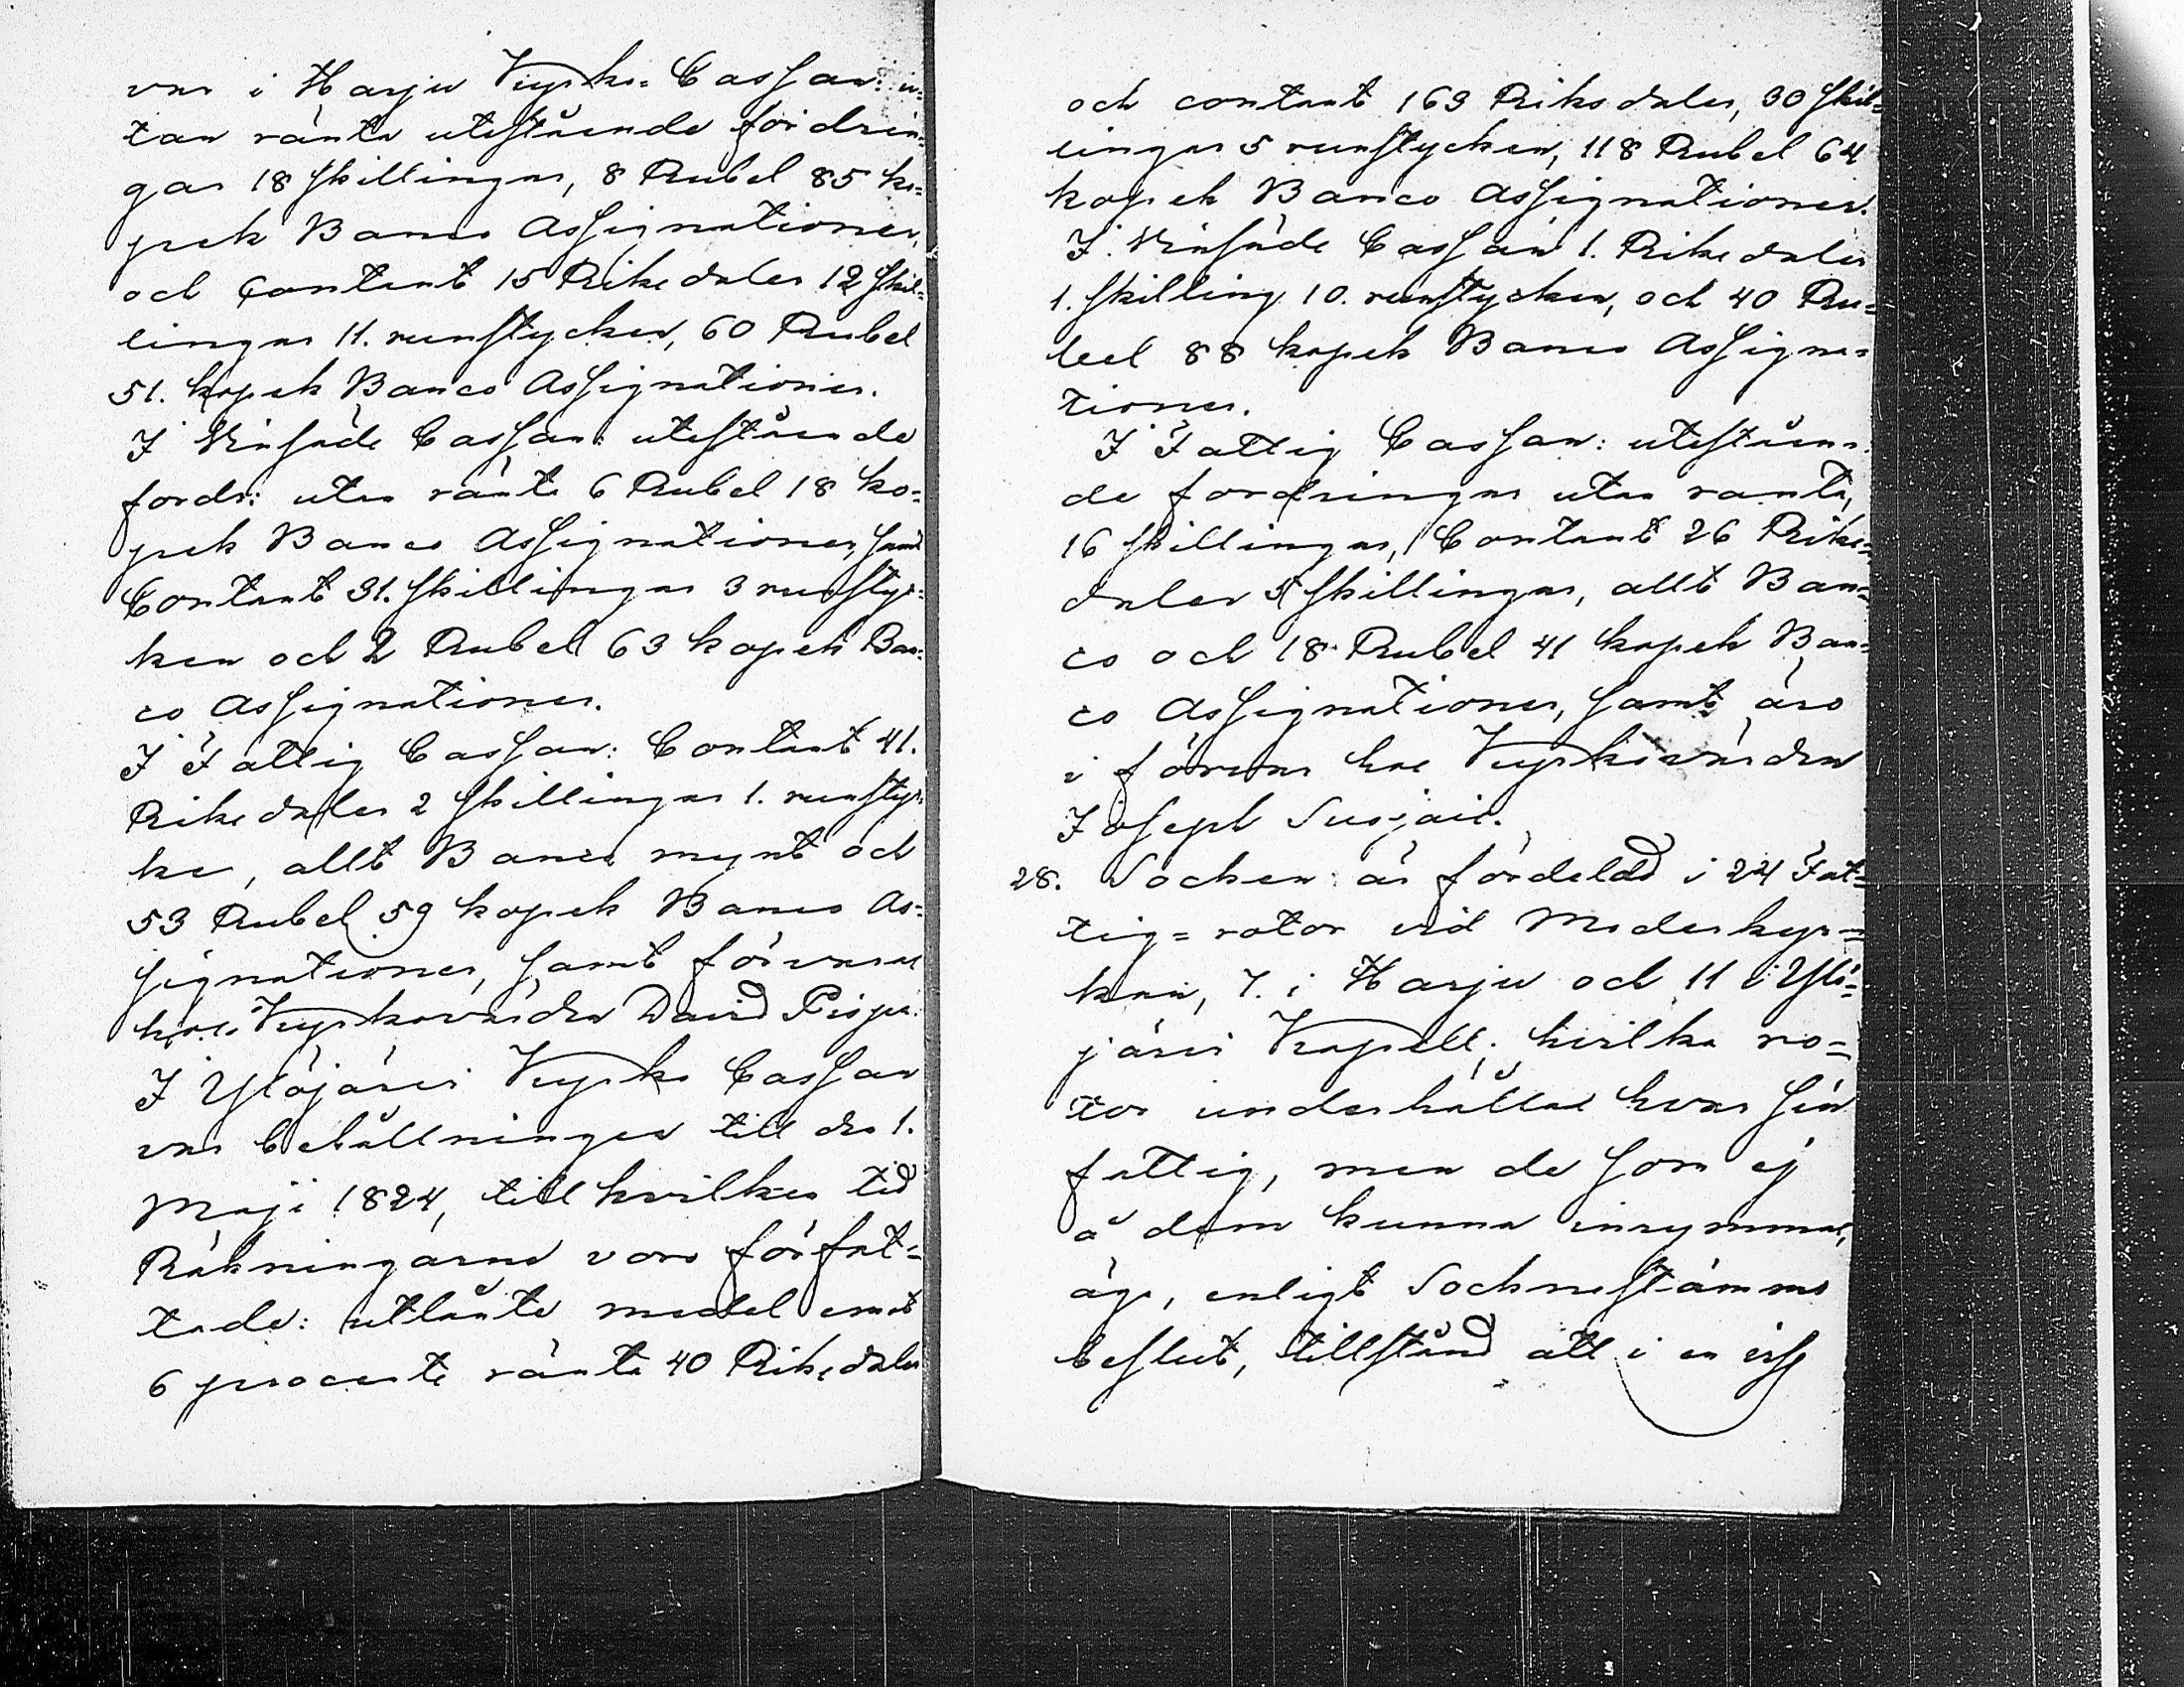 var i Harju Kyrko-Cassan: u-
tan ränta utestående fordrin-
gar 18 skillingar, 8 Rubel 85 ko-
pek Banco Assignationer,
och Contant 15 Riksdaler 12 skil-
lingar 11. runstycken, 60 Rubel
51. kopek Banco Assignationer.
I Cassan: utestående
fordr: utan ränta 6 Rubel 18 ko-
pek Banco Assignationer, samt
Contant 31. skillingar 3 runstyc-
ken och 2 Rubel 63 kopek Ban-
co Assignationer.
I Fattig Cassan: Contant 41.
Riksdaler 2 skillingar 1. runstyc-
ke, allt Banco mynt och
53 Rubel 59 kopek Banco As-
signationer, samt förvaras
hos Kyrkovärden David Pispa.
I Ylöjärvi Kyrko Cassan
var behållningen till den 1.
Maji 1824, till hvilken tid
Räkningarne voro författ-
tade: utlånte medel emot
6 procents ränta 40 Riksdaler
och contant 163 Riksdaler, 30 skil-
lingar 5 runstycken, 118 Rubel 64
kopek Banco Assignationer.
I Cassan 1. Riksdaler
1. skilling 10. runstycken, och 40 Ru-
bel 88 kopek Banco Assigna-
tioner.
I Fattig Cassan: utståen-
de fordringar utan ränta,
16 skillingar, Contant 26 Riks-
daler 5 skillingar, allt Ban-
co och 18 Rubel 41 kopek Ban-
co Assignationer, samt äro
i förvar hos Kyrkovärden
Joseph
28. Socken är fördelad i 24 Fat-
tig-rotor vid Moderkyr-
kan, 7. i Harju och 11 i Ylö-
järvi Kapell; hvilka ro-
tor underhålla hvar sin
fattig, men de som ej
å dem kunna inrymmas,
äga, enligt Sochnestämmo
beslut, tillstånd att i en viss